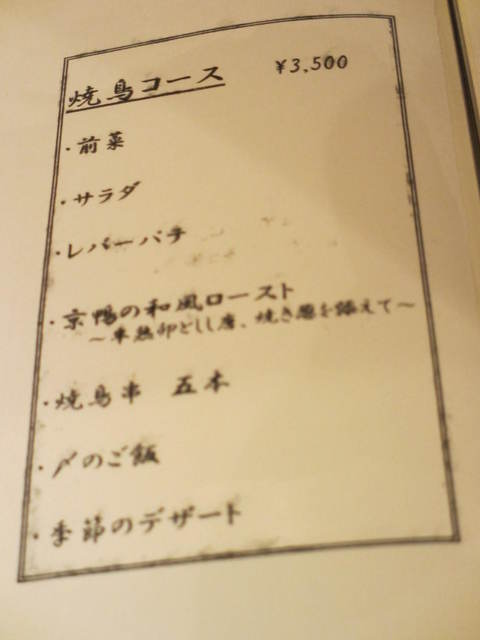 焼鳥コース ¥3,500
・前菜
・サラダ
・レバーパテ
・京鴨の和風ロースト
～半熟卵としし唐、焼き葱を添えて～
・焼鳥串 五本
・〆のご飯
・季節のデザート